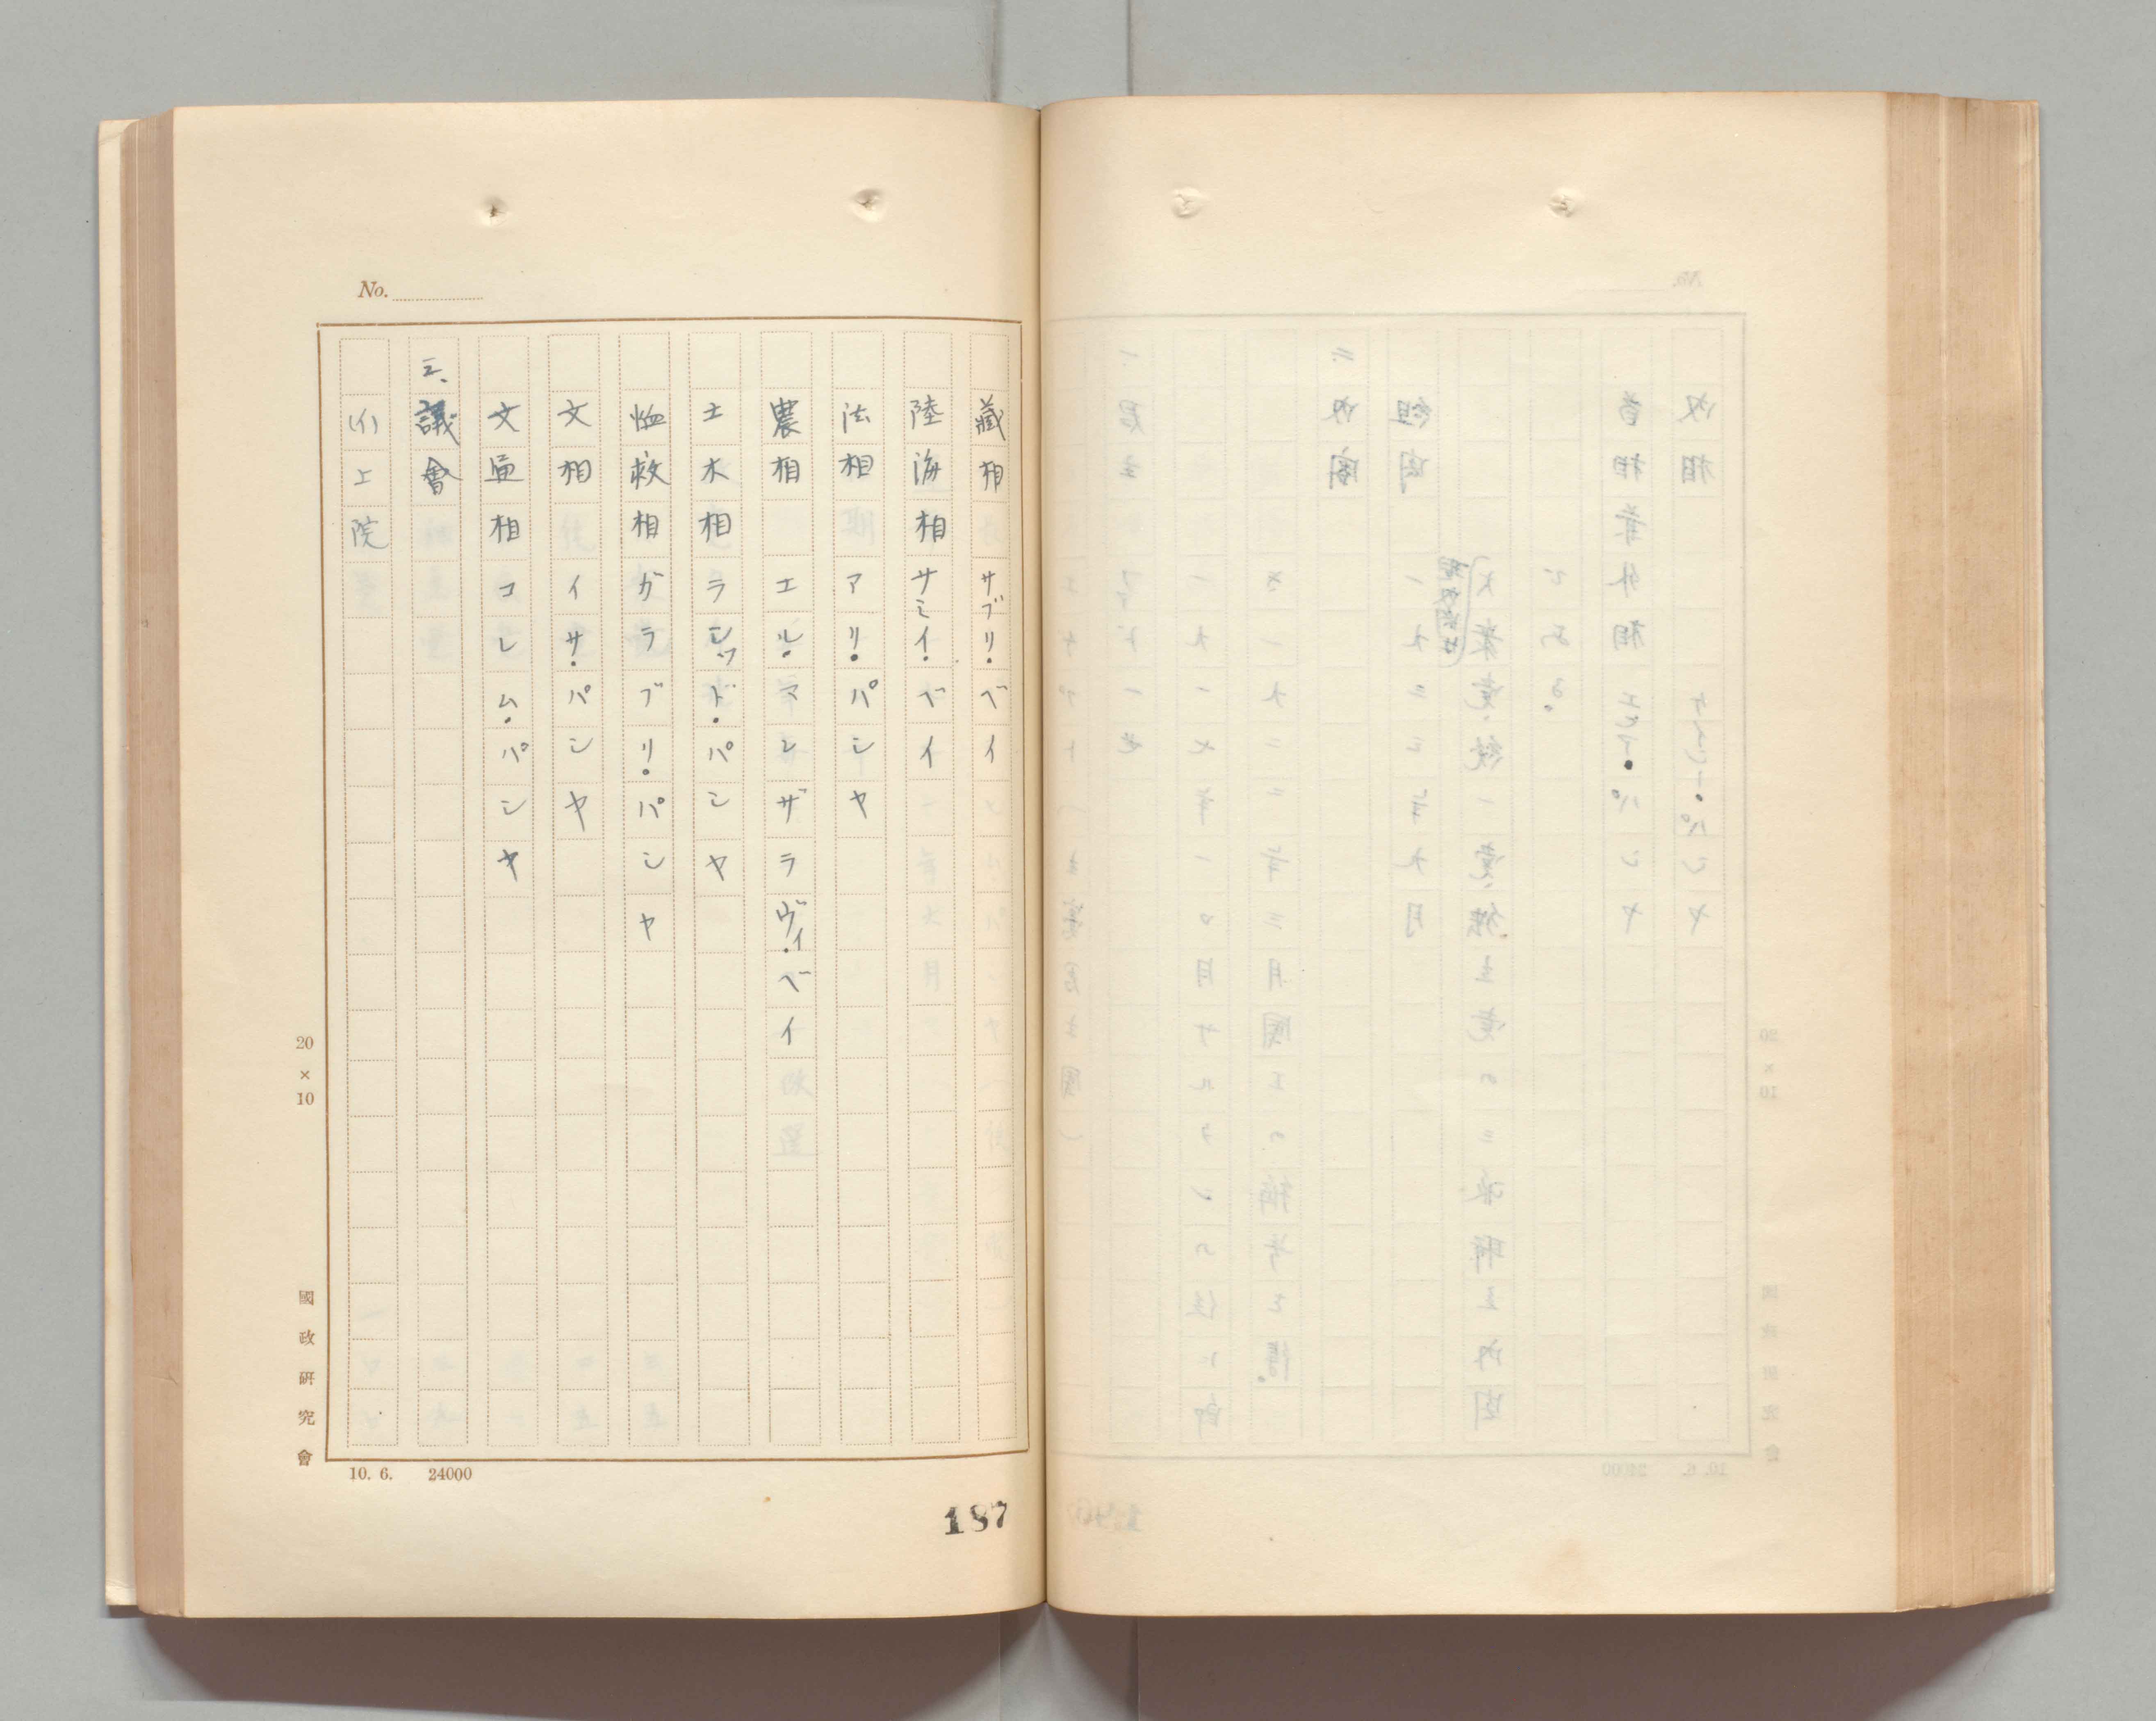 No.
藏相　サブリ・ベイ
陸海相　サミイ・ベイ
法相　アリ・パシヤ
農相　エル・マンザラヴイ・ベイ
土木相　ランツド・パシヤ
恤救相　ガラブリ・パシヤ
文相　イサ・パシヤ
相　コレム・パシヤ
三、議會
(イ)上院
20×10
國政研究會
10. 6.　24000
187